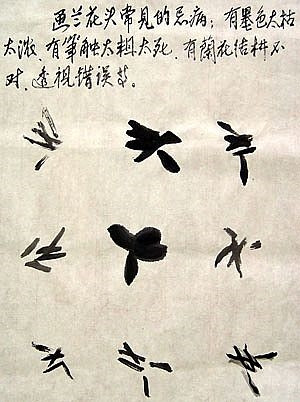 画兰花头常见的忌病：有墨色太枯
太淡，有笔触太粗太死，有兰花结构不
对，透视错误等。